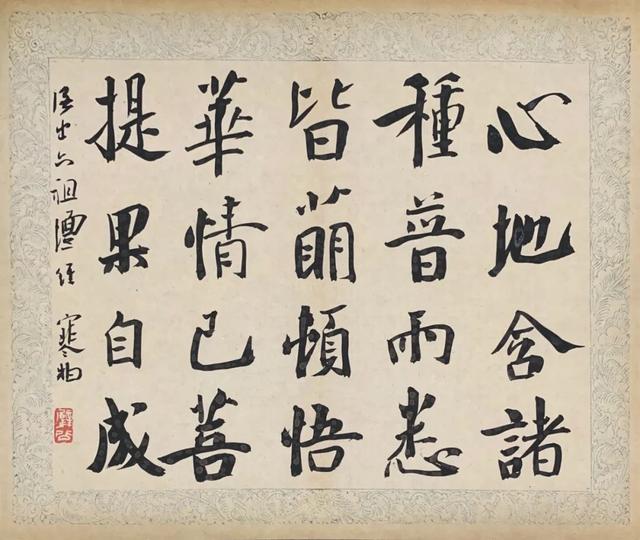 心地含諸
種普雨悉
皆萌頓悟
華情已菩
提果自成
出六祖壇經 寒